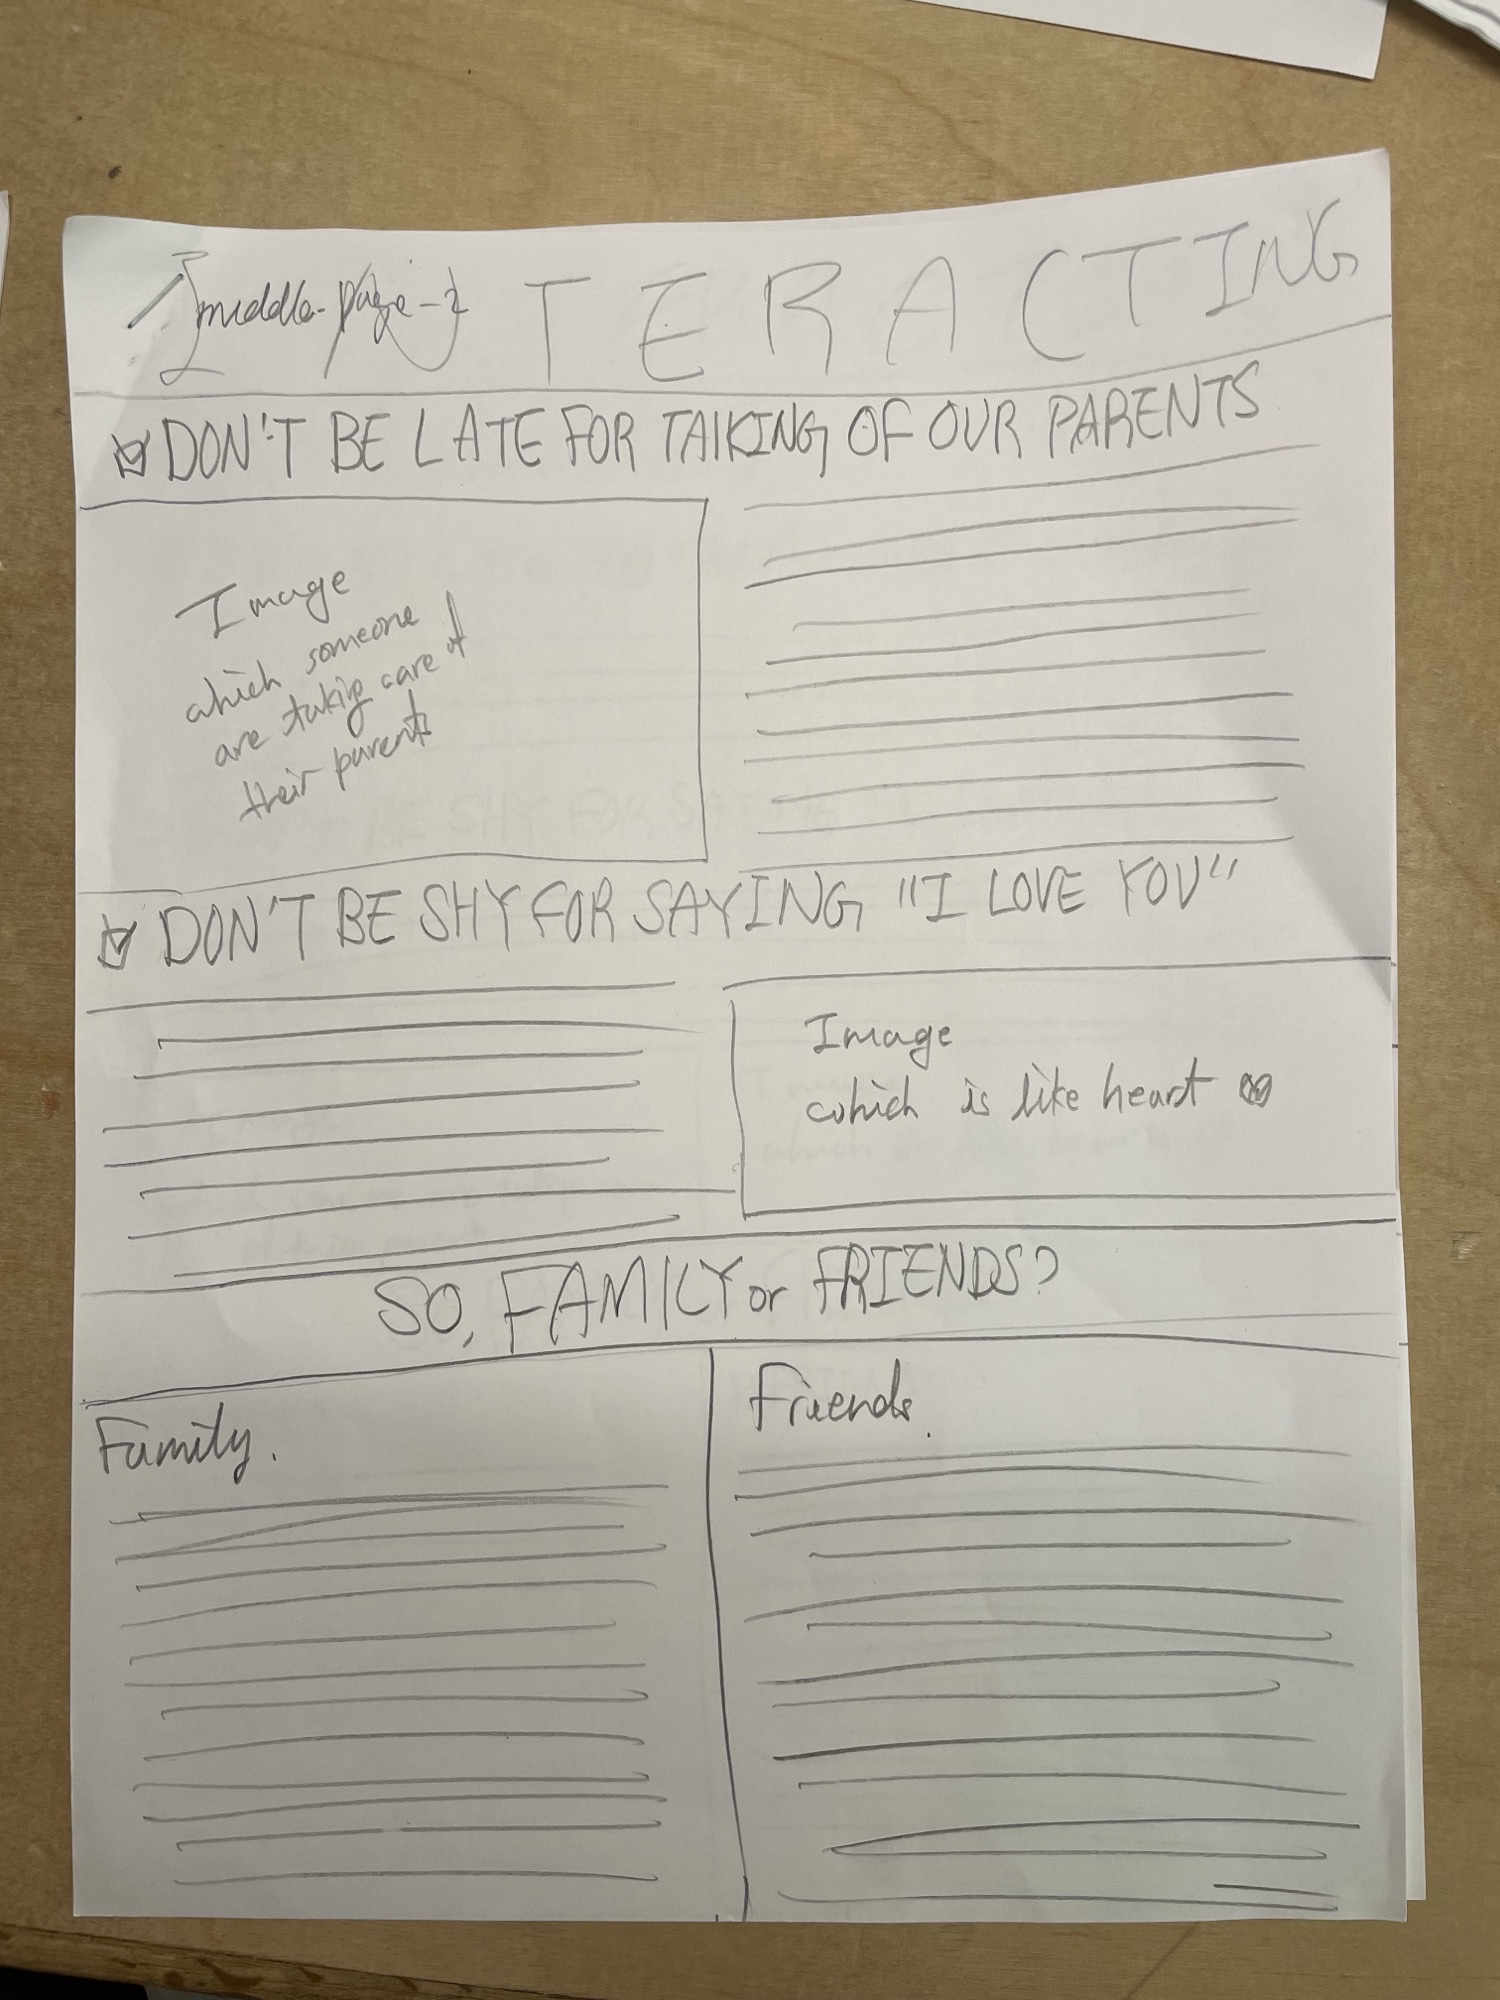 middle-page-2
TERACTING
DON'T BE LATE FOR TALKING OF OUR PARENTS
Image
which someone
are taking care of
their parents
DON'T BE SHY FOR SAYING "I LOVE YOU"
Image
which is like heart
SO, FAMILY or FRIENDS?
Family.
Friends.